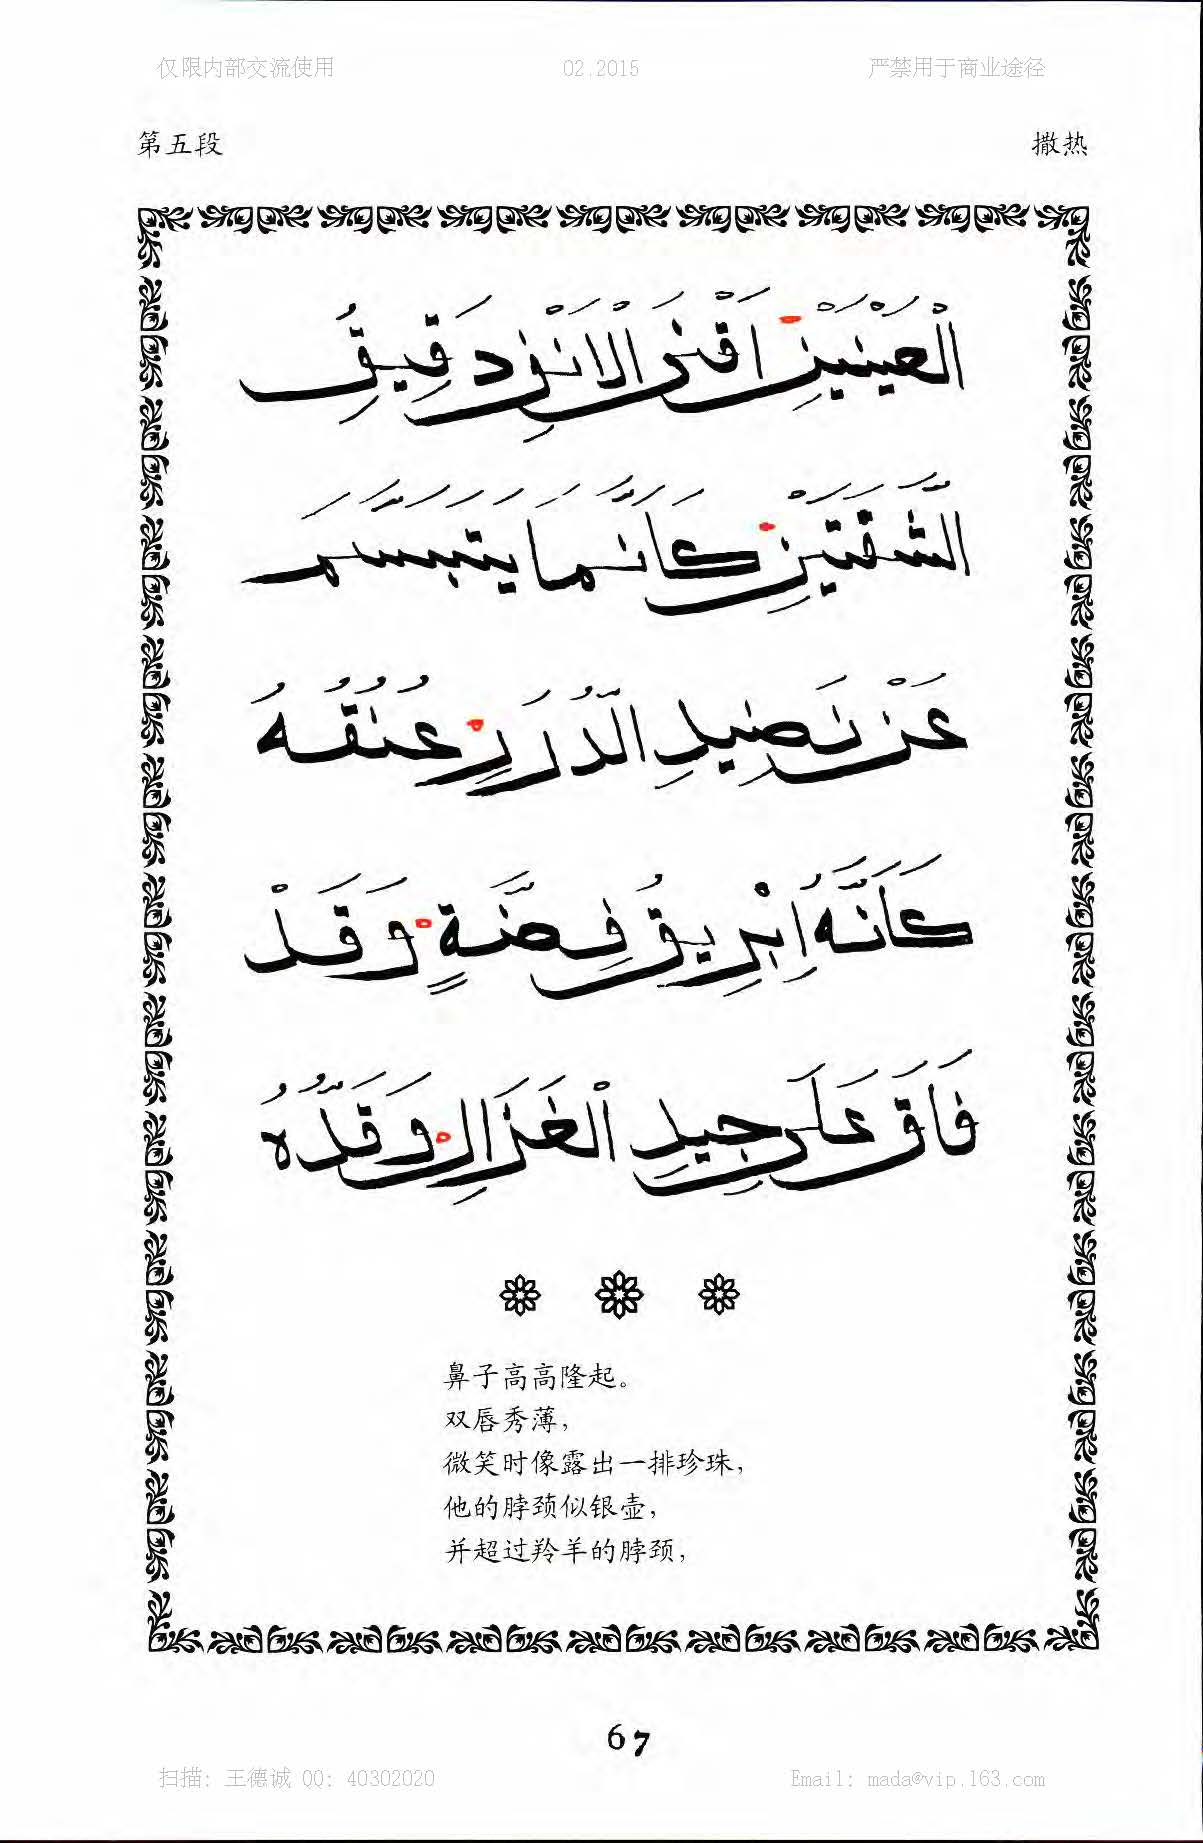 仅限内部交流使用 02.2015 严禁用于商业途径
第五段 撒热
الْعَيْنَيْنِ اَقْنَى الْاَنْفِ دَقِيقُ
الشَّفَتَيْنِ كَاَنَّمَا يَتَبَسَّمُ
عَنْ نَضِيدِ الدُّرَرِ عُنُقُهُ
كَاَنَّهُ اِبْرِيقُ فِضَّةٍ وَقَدْ
فَاقَ عَلَى جِيدِ الْغَزَالِ وَقَدُّهُ
鼻子高高隆起。
双唇秀薄，
微笑时像露出一排珍珠，
他的脖颈似银壶，
并超过羚羊的脖颈，
67
扫描: 王德诚 QQ: 40302020 Email: mada@vip.163.com